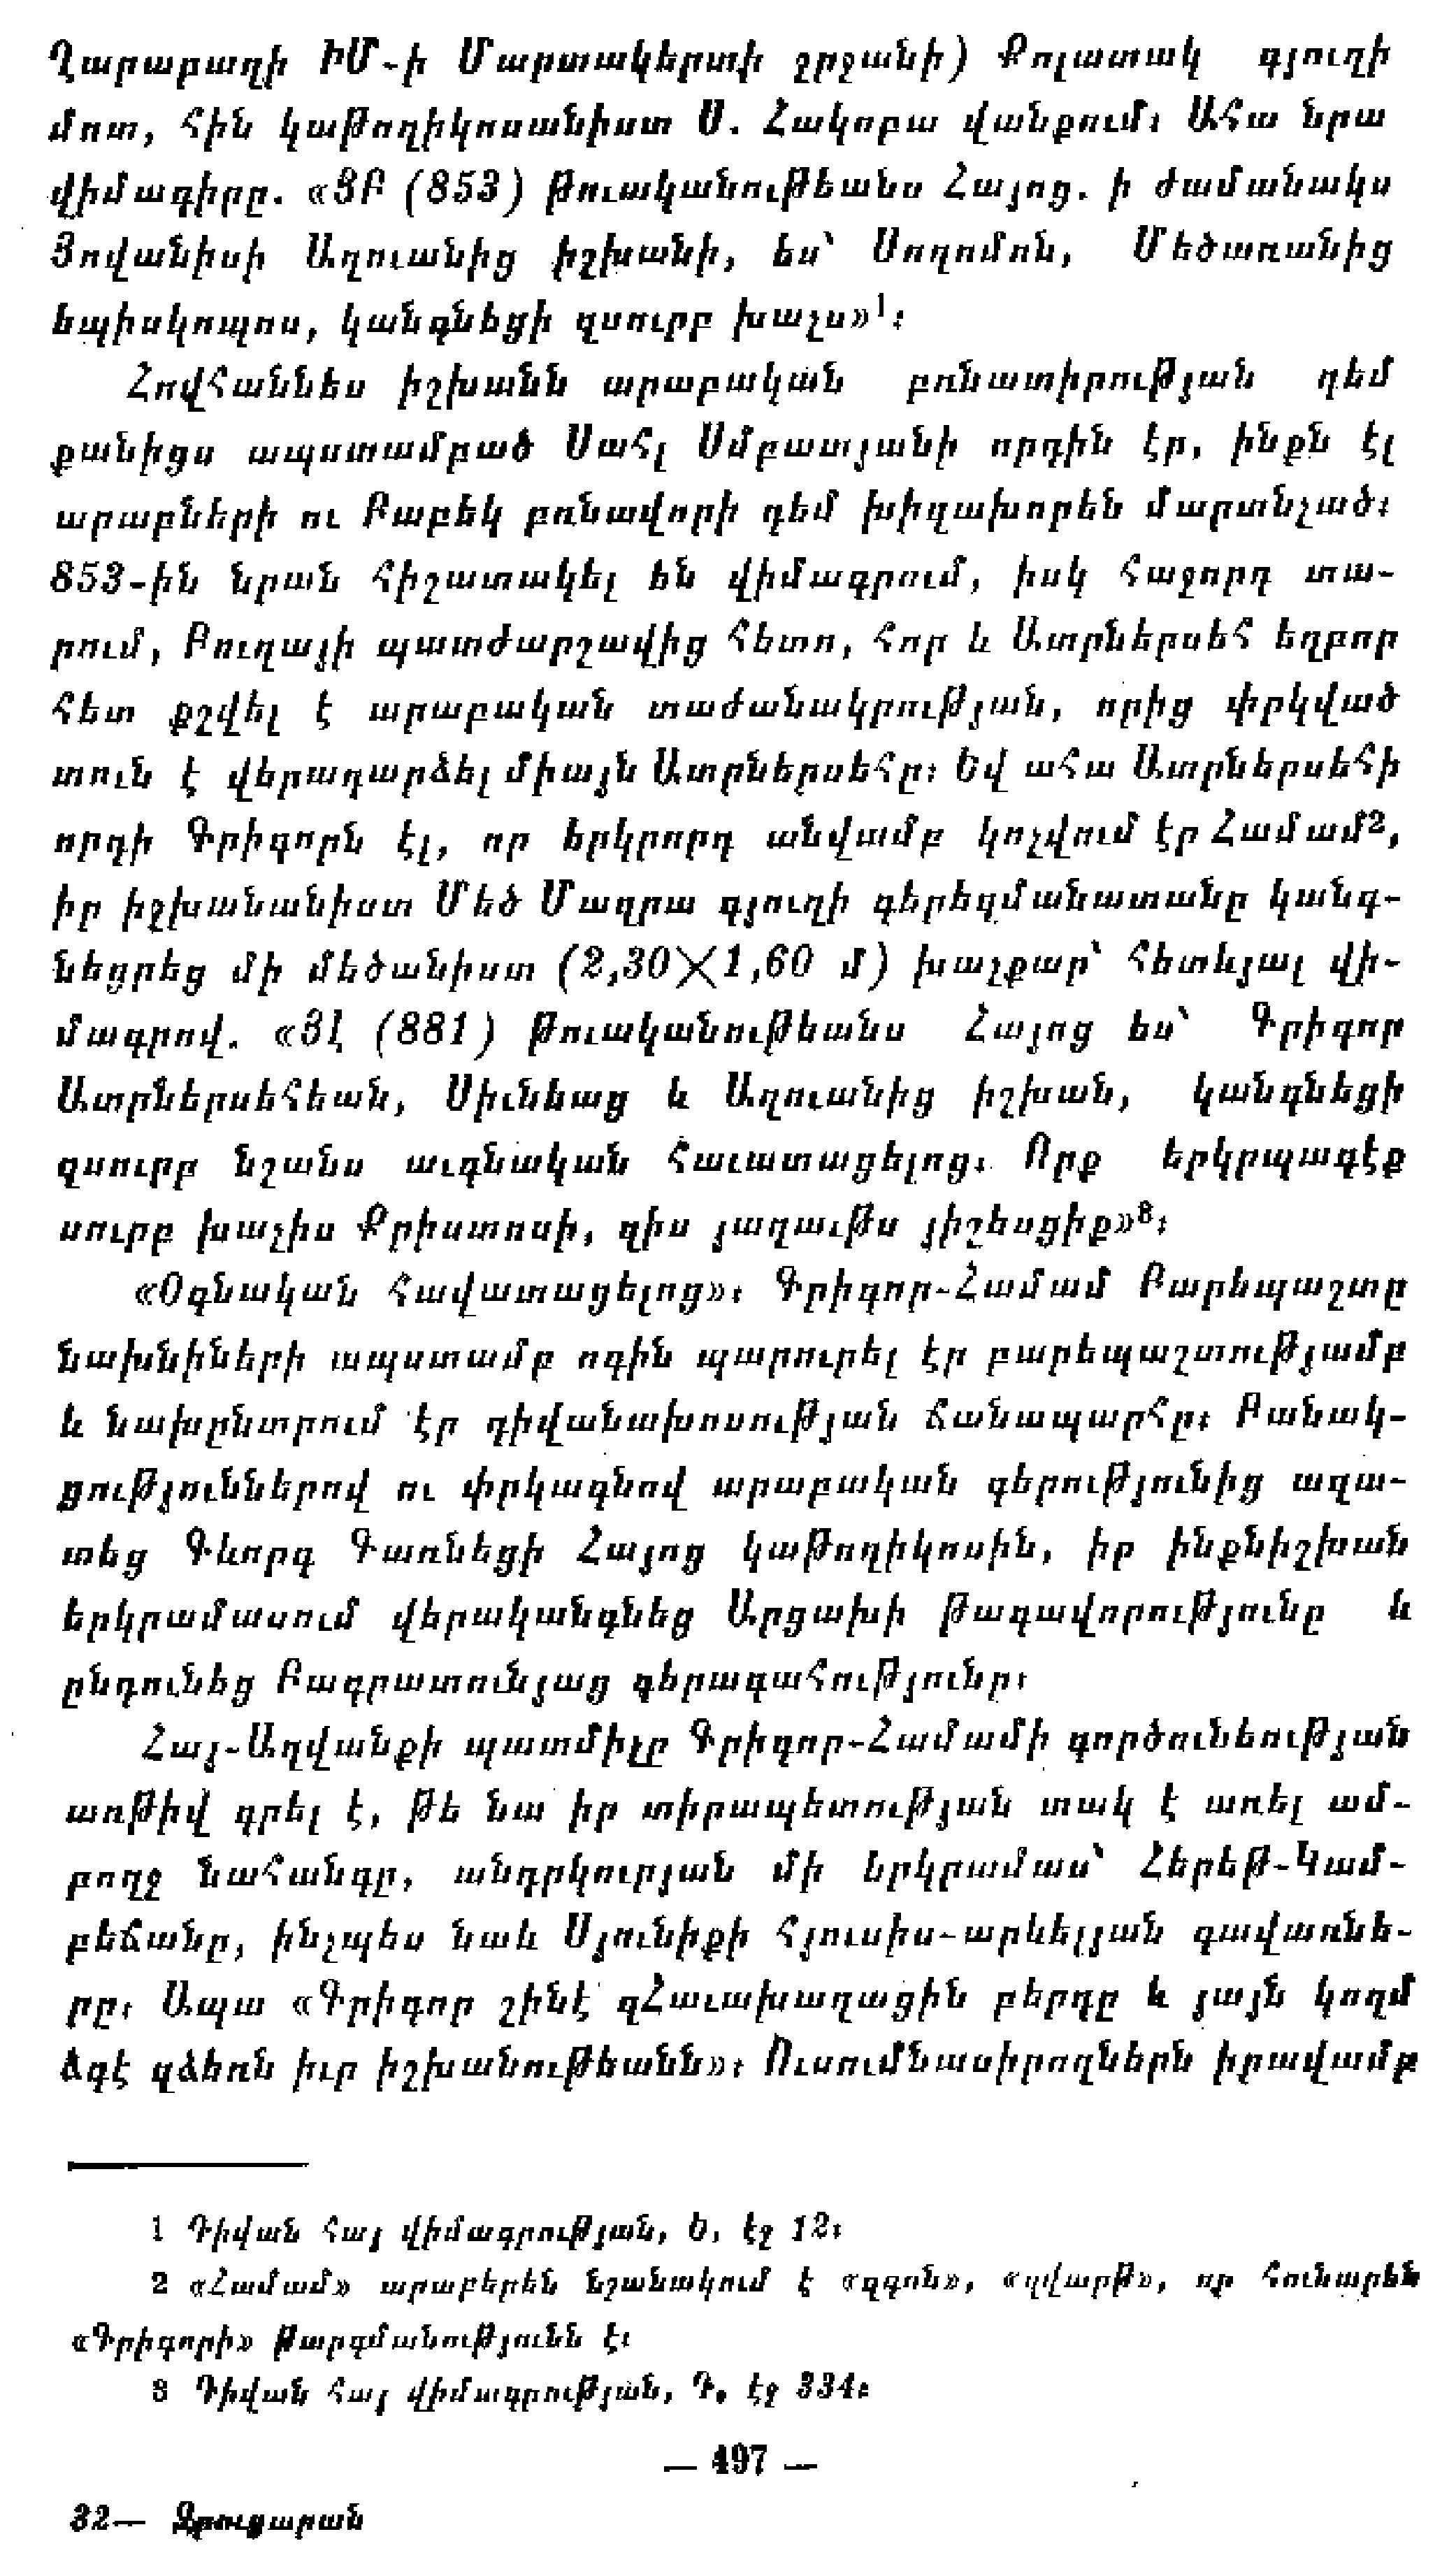 Ղարաբաղի ԻՄ-ի Մարտակերտի շրջանի) Քոլատակ գյուղի
մոտ, հին կաթողիկոսանիստ Ս. Հակոբա վանքում։ Ահա նրա
վիմագիրը. «ՅԲ (853) թուականութեանս Հայոց. ի ժամանակս
Յովանիսի Աղուանից իշխանի, ես՝ Սողոմոն, Մեծառանից
եպիսկոպոս, կանգնեցի զսուրբ խաչս»1։
Հովհաննես իշխանն արաբական բռնատիրության դեմ
քանիցս ապստամբած Սահլ Սմբատյանի որդին էր, ինքն էլ
արաբների ու Բաբեկ բռնավորի դեմ խիզախորեն մարտնչած։
853-ին նրան հիշատակել են վիմագրում, իսկ հաջորդ տա-
րում, Բուղայի պատժարշավից հետո, հոր և Ատրներսեհ եղբոր
հետ քշվել է արաբական տաժանակրության, որից փրկված
տուն է վերադարձել միայն Ատրներսեհը։ Եվ ահա Ատրներսեհի
որդի Գրիգորն էլ, որ երկրորդ անվամբ կոչվում էր Համամ2,
իր իշխանանիստ Մեծ Մազրա գյուղի գերեզմանատանը կանգ-
նեցրեց մի մեծանիստ (2,30×1,60 մ) խաչքար՝ հետևյալ վի-
մագրով. «ՅԼ (881) թուականութեանս Հայոց ես՝ Գրիգոր
Ատրներսեհեան, Սիւնեաց և Աղուանից իշխան, կանգնեցի
զսուրբ նշանս աւգնական հաւատացելոց։ Որք երկրպագէք
սուրբ խաչիս Քրիստոսի, զիս յաղաւթս յիշեսցիք»3։
«Օգնական հավատացելոց»։ Գրիգոր-Համամ Բարեպաշտը
նախնիների ապստամբ ոգին պարուրել էր բարեպաշտությամբ
և նախընտրում էր դիվանախոսության ճանապարհը։ Բանակ-
ցություններով ու փրկագնով արաբական գերությունից ազա-
տեց Գևորգ Գառնեցի Հայոց կաթողիկոսին, իր ինքնիշխան
երկրամասում վերականգնեց Արցախի թագավորությունը և
ընդունեց Բագրատունյաց գերագահությունը։
Հայ-Աղվանքի պատմիչը Գրիգոր-Համամի գործունեության
առթիվ գրել է, թե նա իր տիրապետության տակ է առել ամ-
բողջ նահանգը, անդրկուրյան մի երկրամաս՝ Հերեթ-Կամ-
բեճանը, ինչպես նաև Սյունիքի հյուսիս-արևելյան գավառնե-
րը։ Ապա «Գրիգոր շինէ զՀաւախաղացին բերդը և յայն կողմ
ձգէ զձեռն իւր իշխանութեանն»։ Ուսումնասիրողներն իրավամբ
1 Դիվան հայ վիմագրության, Ե, էջ 12։
2 «Համամ» արաբերեն նշանակում է «զգոն», «զվարթ», որ հունարեն
«Գրիգորի» թարգմանությունն է։
3 Դիվան հայ վիմագրության, Դ, էջ 334։
— 497 —
32— Զրուցարան